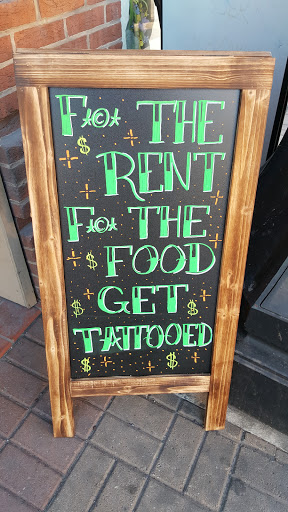 F*©* THE
RENT
F*©* THE
FOOD
GET
TATTOOED